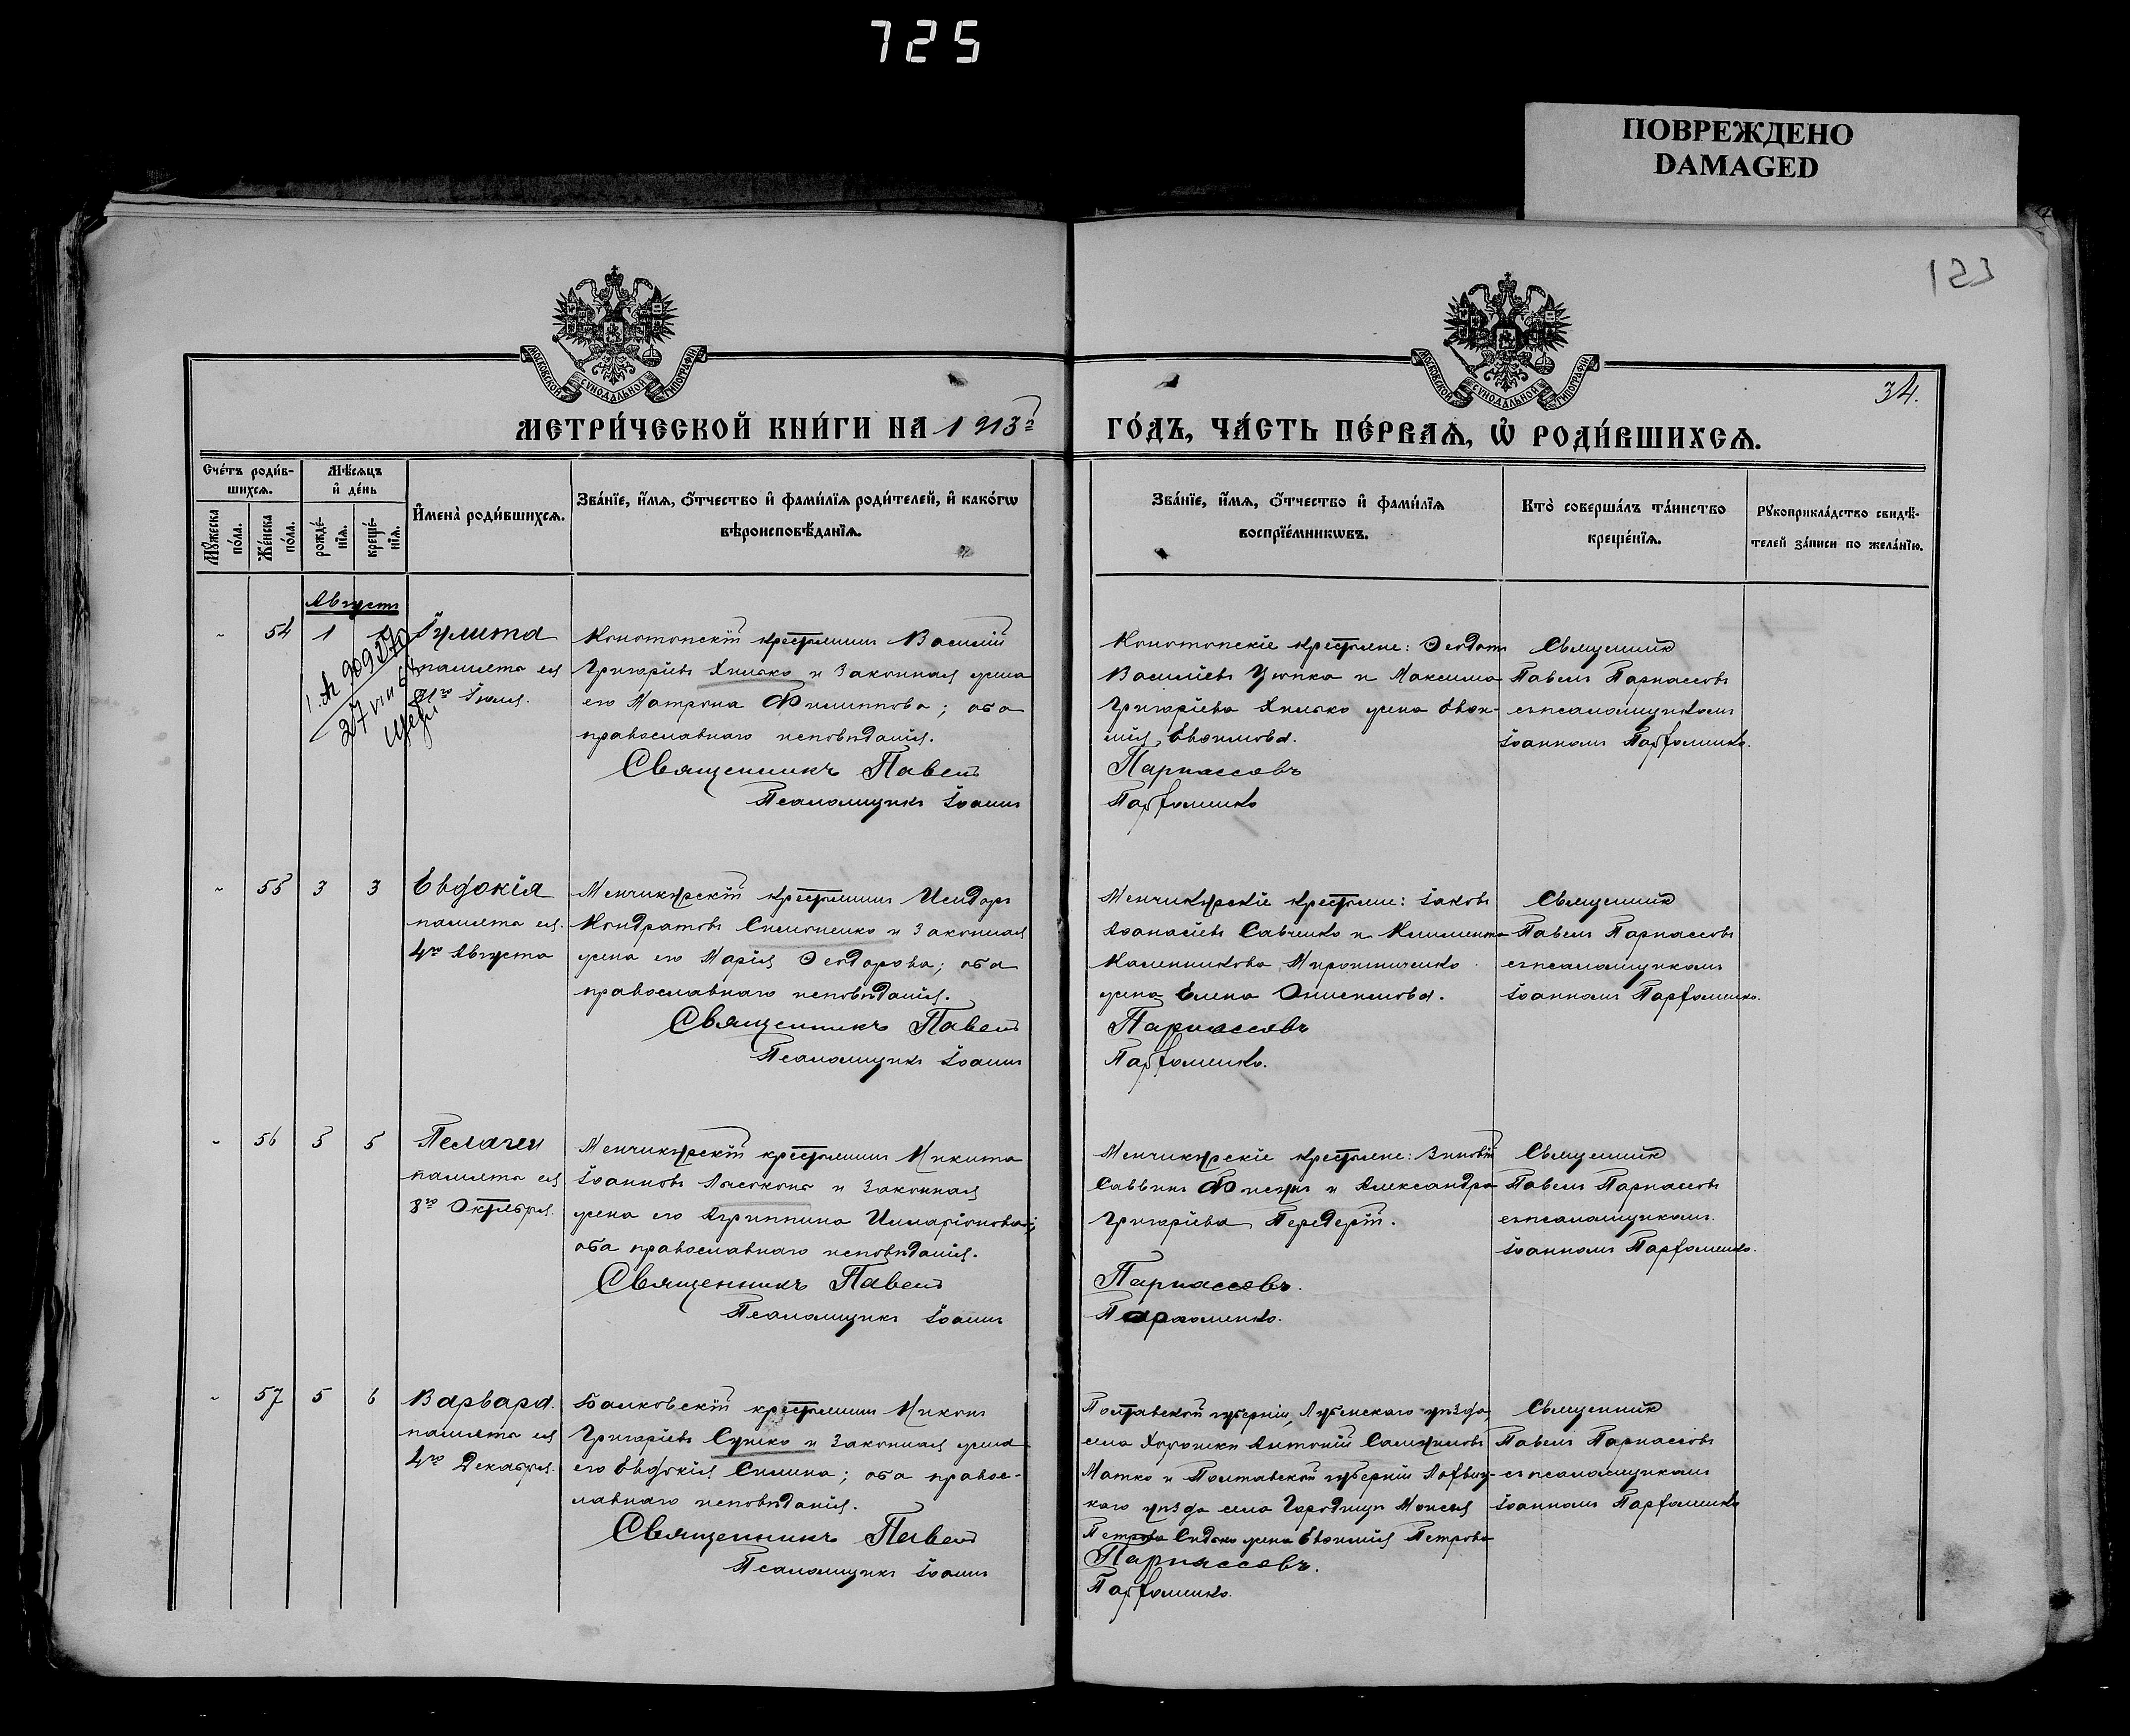 725
ПОВРЕЖДЕНО
DAMAGED
123
34.
МОСКОВСКОЙ СУНОДАЛЬНОЙ ТИПОГРАФІИ
МОСКОВСКОЙ СУНОДАЛЬНОЙ ТИПОГРАФІИ
МЕТРИ́ЧЕСКОЙ КНИ́ГИ НА 1913 г
ГО́ДЪ, ЧА́СТЬ ПЕ́РВАѦ, Ѡ҆ РОДИ́ВШИХСѦ.
Сче́тъ роди́в-
шихсѧ.
Мѣ́сѧцъ
и҆ де́нь
Мꙋ́жеска
по́ла.
Же́нска
по́ла.
рожде́-
нїѧ.
креще́-
нїѧ.
И҆мена̀ роди́вшихсѧ.
Зва́нїе, и҆́мѧ, ѻ҆́тчество и҆ фами́лїѧ роди́телей, и҆ како́гѡ
вѣроисповѣ́данїѧ.
Зва́нїе, и҆́мѧ, ѻ҆́тчество и҆ фами́лїѧ
воспрїе́мникѡвъ.
Кто̀ соверша́лъ та́инство
креще́нїѧ.
Рꙋкоприкла́дство свидѣ́-
телей за́писи по жела́нїю.
Августъ
54 1
Іулита
память ея
31го Іюля.
Конотопскій крестьянинъ Василій
Григоріевъ Хилько и законная жена
его Матрона Филиппова; оба
православнаго исповѣданія.
Священникъ Павелъ
Псаломщикъ Іоаннъ
Конотопскіе крестьяне: Ѳеодотъ
Василіевъ Цюпка и Максима
Григоріева Хилько жена Евѳи-
мія Евѳимова.
Парнассовъ
Парѳоменко
Священникъ
Павелъ Парнассовъ
съ псаломщикомъ
Іоанномъ Парѳоменко.
55 3 3
Евдокія
память ея
4го Августа
Менчикурскій крестьянинъ Исидоръ
Кондратовъ Симоненко и законная
жена его Марія Ѳеодорова; оба
православнаго исповѣданія.
Священникъ Павелъ
Псаломщикъ Іоаннъ
Менчикурскіе крестьяне: Іаковъ
Аѳанасіевъ Савченко и Климента
Калинникова Мирошниченко
жена Елена Онисимова.
Парнассовъ
Парѳоменко.
Священникъ
Павелъ Парнассовъ
съ псаломщикомъ
Іоанномъ Парѳоменко.
56 5 5
Пелагеи
память ея
8го Октября.
Менчикурскій крестьянинъ Никита
Іоанновъ и законная
жена его Агриппина Илларіонова;
оба православнаго исповѣданія.
Священникъ Павелъ
Псаломщикъ Іоаннъ
Менчикурскіе крестьяне: Зиновій
Саввинъ и Александра
Григоріева Передерій.
Парнассовъ.
Парѳоменко.
Священникъ
Павелъ Парнассовъ
съ псаломщикомъ.
Іоанномъ Парѳоменко.
57 5 6
Варвара.
память ея
4го Декабря.
Балковскій крестьянинъ Никонъ
Григоріевъ Сушко и законная жена
его Евдокія Симина; оба правос-
лавнаго исповѣданія.
Священникъ Павелъ
Псаломщикъ Іоаннъ
Полтавской губерніи, Лубенскаго уѣзда,
села Хорошки Антоній Самуиловъ
Матко и Полтавской губерніи Лохвиц-
каго уѣзда села Городища Моисея
Петрова жена Евѳимія Петрова
Парнассовъ.
Парѳоменко.
Священникъ
Павелъ Парнассовъ
съ псаломщикомъ
Іоанномъ Парѳоменко